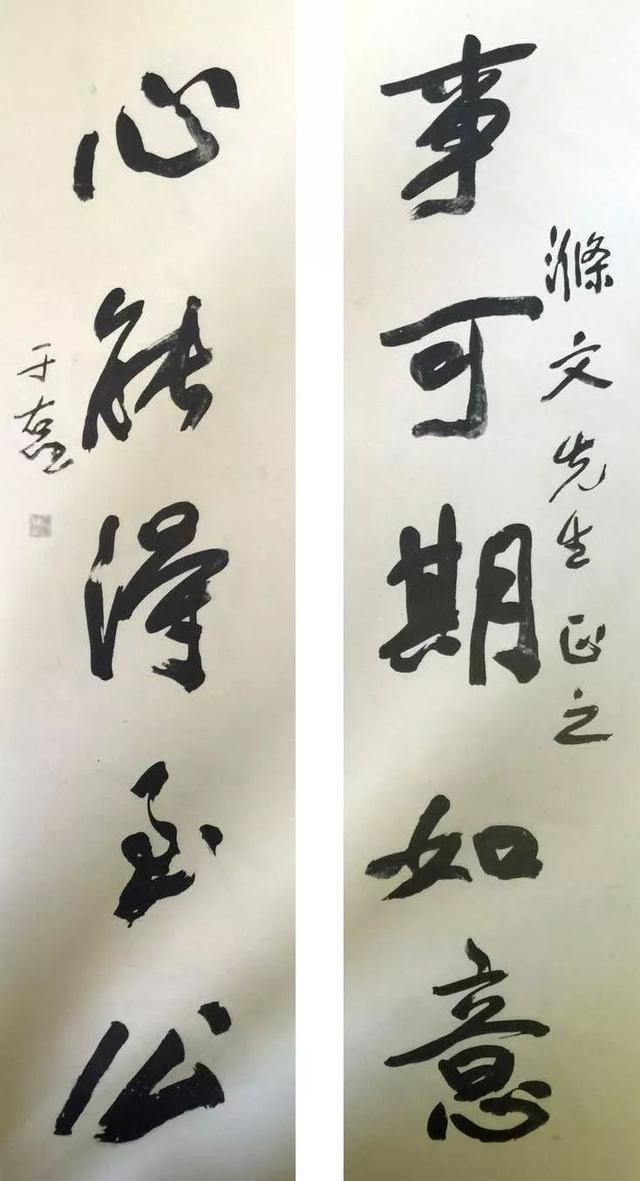 滌文先生正之
事可期如意
心能得至公
于右任